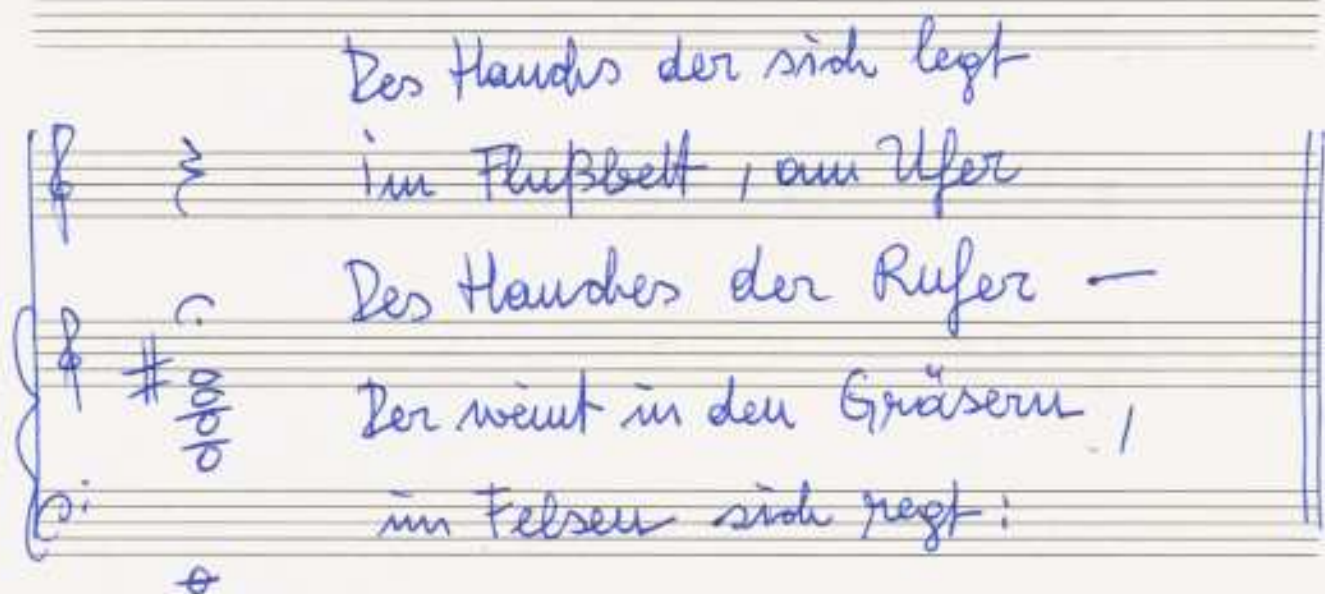 Des Hauchs der sich legt
im Flußbett, am Ufer
Des Hauches der Rufer —
Der weint in den Gräsern,
im Felsen sich regt: